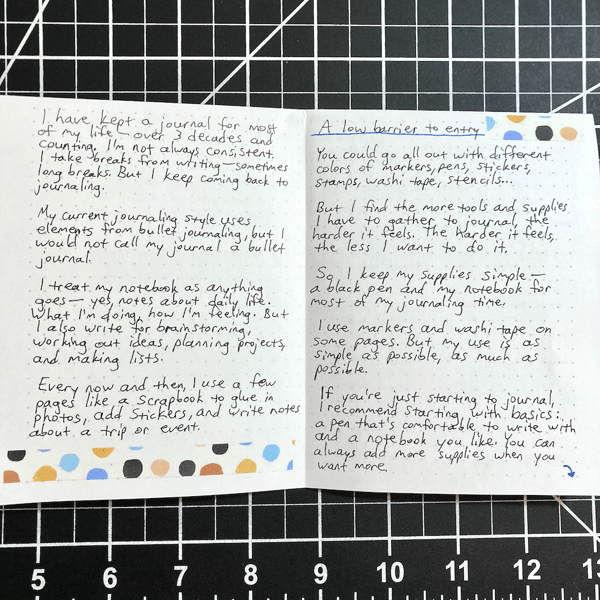 I have kept a journal for most
of my life — over 3 decades and
counting. I'm not always consistent.
I take breaks from writing — sometimes
long breaks. But I keep coming back to
journaling.
My current journaling style uses
elements from bullet journaling, but I
would not call my journal a bullet
journal.
I treat my notebook as anything
goes — yes, notes about daily life.
What I'm doing, how I'm feeling. But
I also write for brainstorming,
working out ideas, planning projects,
and making lists.
Every now and then, I use a few
pages like a scrapbook to glue in
photos, add stickers, and write notes
about a trip or event.
A low barrier to entry
You could go all out with different
colors of markers, pens, stickers,
stamps, washi tape, stencils...
But I find the more tools and supplies
I have to gather to journal, the
harder it feels. The harder it feels,
the less I want to do it.
So, I keep my supplies simple —
a black pen and my notebook for
most of my journaling time.
I use markers and washi tape on
some pages. But my use is as
simple as possible, as much as
possible.
If you're just starting to journal,
I recommend starting with basics:
a pen that's comfortable to write with
and a notebook you like. You can
always add more supplies when you
want more.
5 6 7 8 9 10 11 12 13